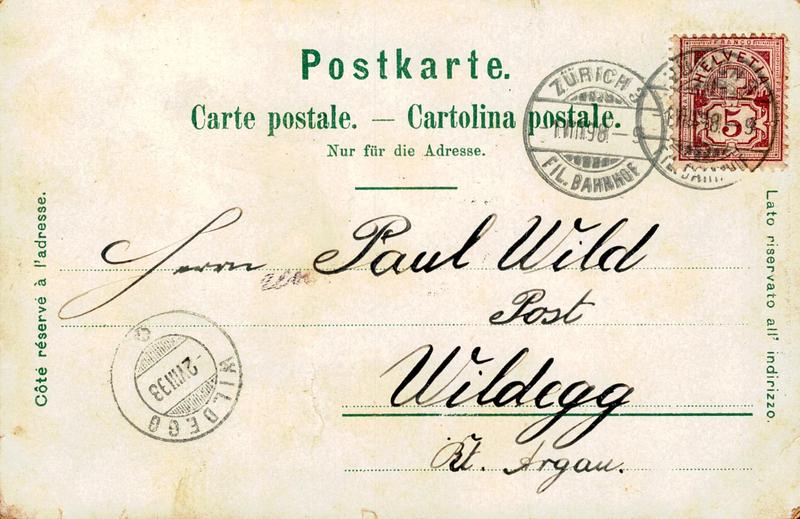 Postkarte.
Carte postale. — Cartolina postale.
Nur für die Adresse.
ZÜRICH 3
1.VIII.98.–9
FIL. BAHNHOF
FRANCO
HELVETIA
5
Côté réservé à l'adresse.
Lato riservato all' indirizzo.
Herrn Paul Wild
Post
Wildegg
Kt. Argau.
WILDEGG
-2.VIII.98